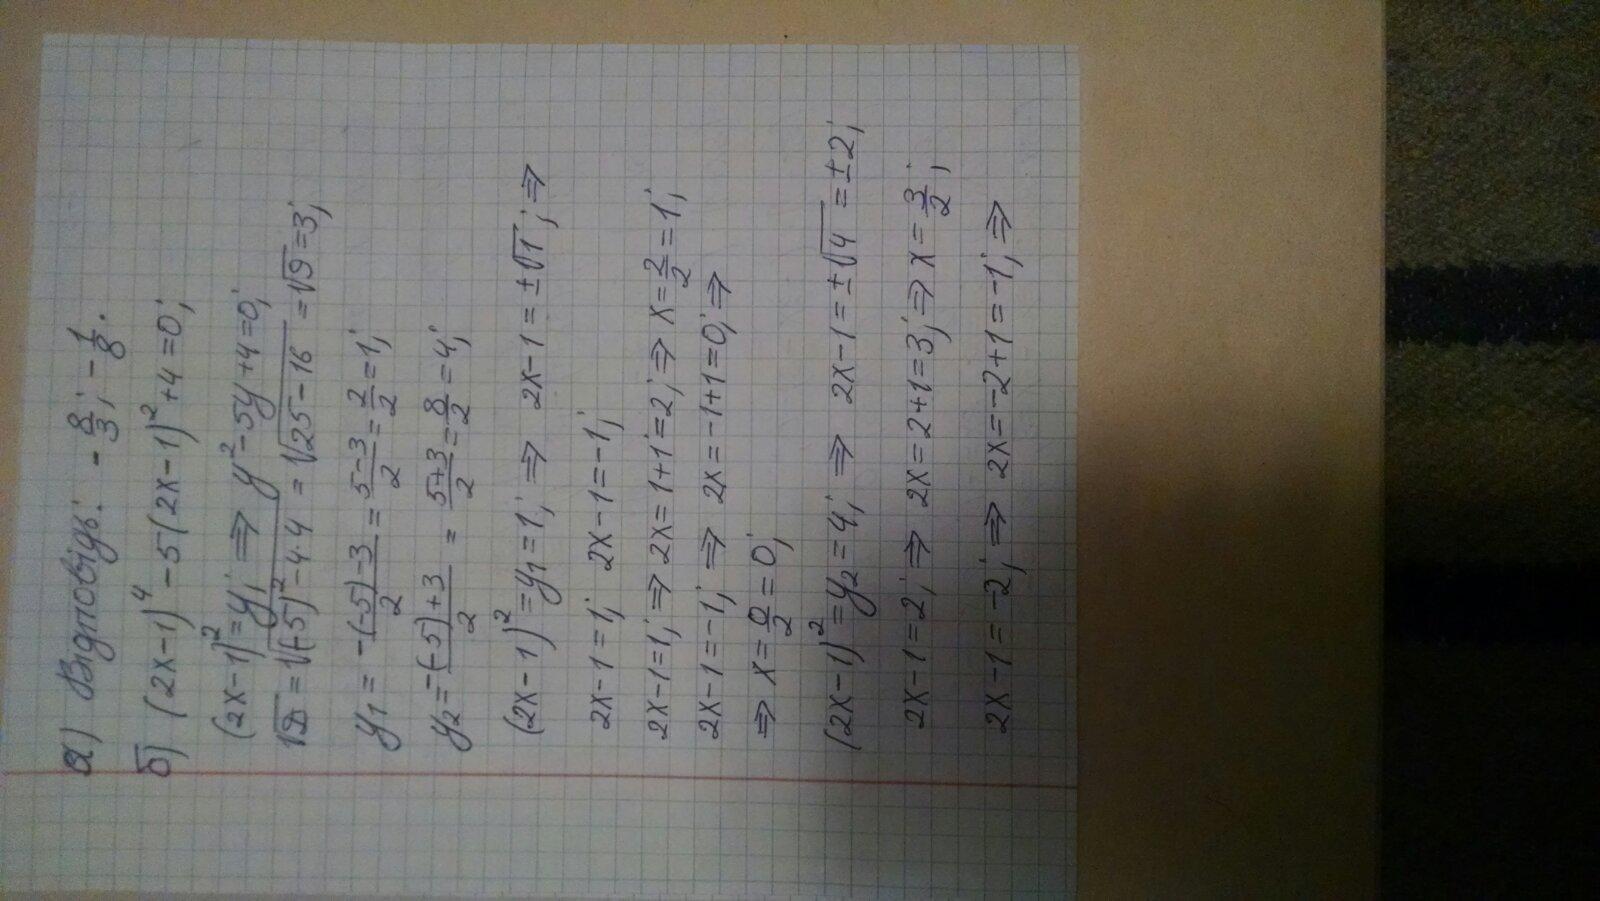 а) Відповідь: -8/3; -1/8.
б) (2x-1)⁴-5(2x-1)²+4=0;
(2x-1)²=y; ⇒ y²-5y+4=0;
√D=√((-5)²-4·4)=√(25-16)=√9=3;
y₁=(-(-5)-3)/2=(5-3)/2=2/2=1;
y₂=(-(-5)+3)/2=(5+3)/2=8/2=4;
(2x-1)²=y₁=1; ⇒ 2x-1=±√1; ⇒
2x-1=1; 2x-1=-1;
2x-1=1; ⇒ 2x=1+1=2; ⇒ x=2/2=1;
2x-1=-1; ⇒ 2x=-1+1=0; ⇒
⇒ x=0/2=0;
(2x-1)²=y₂=4; ⇒ 2x-1=±√4=±2;
2x-1=2; ⇒ 2x=2+1=3; ⇒ x=3/2;
2x-1=-2; ⇒ 2x=-2+1=-1; ⇒